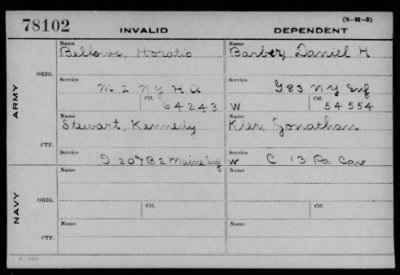 (3-M-5)
78102 INVALID DEPENDENT
Name Name
Bellows, Horatio Barber, Daniel H
ORIG.
Service Service
M 2 N Y H A G 83 N Y Inf
Ctf. Ctf.
64243 W 54554
ARMY
Name Name
Stewart, Kennedy Kier, Jonathan
CTF.
Service Service
D 20 & B 2 Maine Inf W C 13 Pa Cav
Name Name
ORIG.
Ctf. Ctf.
NAVY
Name Name
CTF.